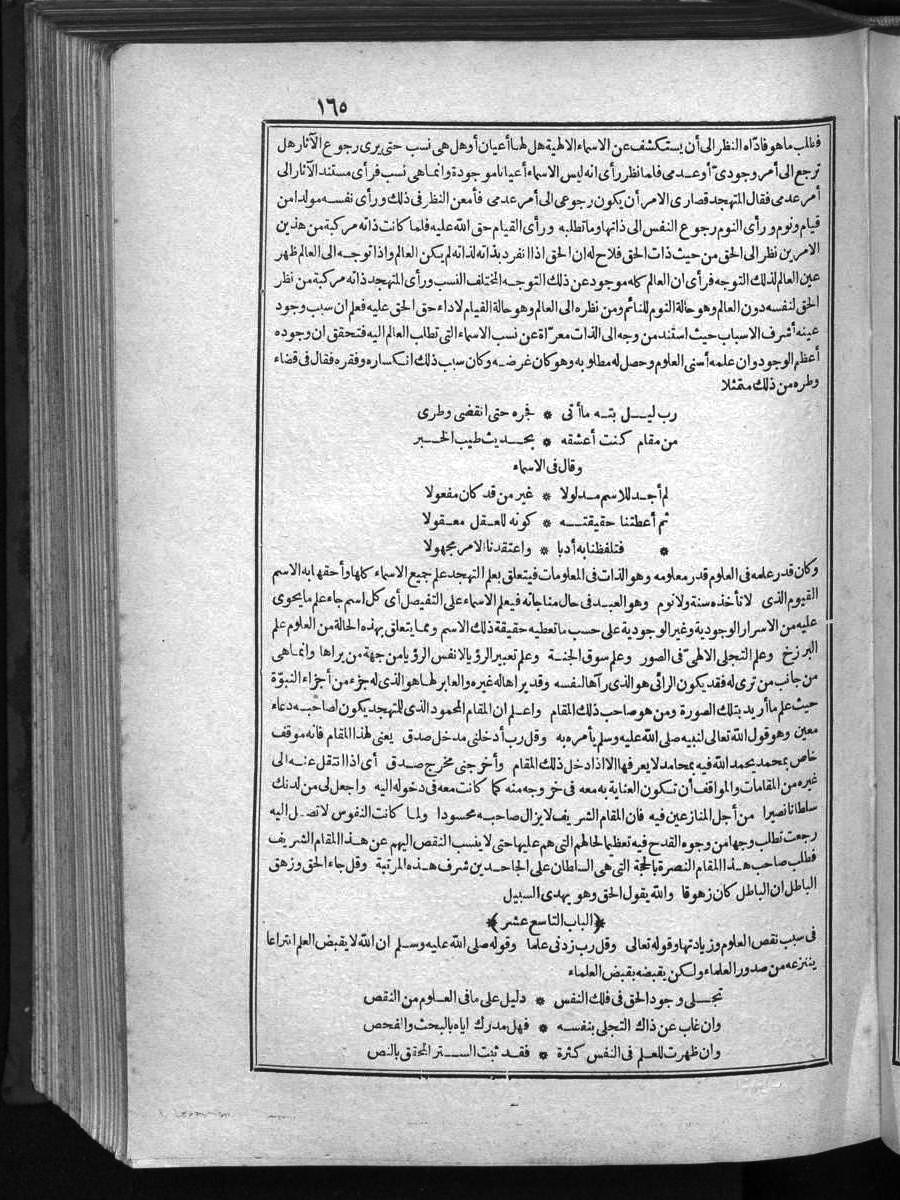 ١٦٥
فطلب ما هو فادّاه النظر الى أن يستكشف عن الاسماء الالهية هل لها أعيان أو هل هى نسب حتى يرى رجوع الآثار هل
ترجع الى أمر وجودىّ أو عدمى فلما نظر رأى انه ليس الاسماء أعيانا موجودة وانما هى نسب فرأى مستند الآثار الى
أمر عدمى فقال المتهجد قصارى الامر أن يكون رجوعى الى أمر عدمى فأمعن النظر فى ذلك ورأى نفسه مولدا من
قيام ونوم ورأى النوم رجوع النفس الى ذاتها وما تطلبه ورأى القيام حق الله عليه فلما كانت ذاته مركبة من هذين
الامرين نظر الى الحق من حيث ذات الحق فلاح له ان الحق اذا انفرد بذاته لذاته لم يكن العالم واذا توجه الى العالم ظهر
عين العالم لذلك التوجه فرأى ان العالم كله موجود عن ذلك التوجه المختلف النسب ورأى المتهجد ذاته مركبة من نظر
الحق لنفسه دون العالم وهو حالة النوم للنائم ومن نظره الى العالم وهو حالة القيام لاداء حق الحق عليه فعلم ان سبب وجود
عينه أشرف الاسباب حيث استند من وجه الى الذات معرّاة عن نسب الاسماء التى تطلب العالم اليه فتحقق ان وجوده
أعظم الوجود وان علمه أسنى العلوم وحصل له مطلوبه وهو كان غرضه وكان سبب ذلك انكساره وفقره فقال فى قضاء
وطره من ذلك متمثلا
رب ليل بته ما أتى * فجره حتى انقضى وطرى
من مقام كنت أعشقه * بحديث طيب الخبر
وقال فى الاسماء
لم أجد للاسم مدلولا * غير من قد كان مفعولا
ثم أعطتنا حقيقته * كونه للعقل معقولا
* فتلفظنا به أدبا * واعتقدنا الامر مجهولا
وكان قدر علمه فى العلوم قدر معلومه وهو الذات فى المعلومات فيتعلق بعلم التهجد علم جميع الاسماء كلها وأحقها به الاسم
القيوم الذى لا تأخذه سنة ولا نوم وهو العبد فى حال مناجاته فيعلم الاسماء على التفصيل أى كل اسم جاء علم ما يحوى
عليه من الاسرار الوجودية وغير الوجودية على حسب ما تعطيه حقيقة ذلك الاسم ومما يتعلق بهذه الحالة من العلوم علم
البرزخ وعلم التجلى الالهىّ فى الصور وعلم سوق الجنة وعلم تعبير الرؤيا لا نفس الرؤيا من جهة من يراها وانما هى
من جانب من ترى له فقد يكون الرائى هو الذى رآها لنفسه وقد يراها له غيره والعابر لها هو الذى له جزء من أجزاء النبوّة
حيث علم ما أريد بتلك الصورة ومن هو صاحب ذلك المقام واعلم ان المقام المحمود الذى للمتهجد يكون لصاحبه دعاء
معين وهو قول الله تعالى لنبيه صلى الله عليه وسلم يأمره به وقل رب أدخلنى مدخل صدق يعنى لهذا المقام فانه موقف
خاص بمحمد يحمد الله فيه بمحامد لا يعرفها الا اذا دخل ذلك المقام وأخرجنى مخرج صدق أى اذا انتقل عنه الى
غيره من المقامات والمواقف أن تكون العناية به معه فى خروجه منه كما كانت معه فى دخوله اليه واجعل لى من لدنك
سلطانا نصيرا من أجل المنازعين فيه فان المقام الشريف لا يزال صاحبه محسودا ولما كانت النفوس لا تصل اليه
رجعت تطلب وجها من وجوه القدح فيه تعظيما لحالهم التى هم عليها حتى لا ينسب النقص اليهم عن هذا المقام الشريف
فطلب صاحب هذا المقام النصرة بالحجة التى هى السلطان على الجاحدين شرف هذه المرتبة وقل جاء الحق وزهق
الباطل ان الباطل كان زهوقا والله يقول الحق وهو يهدى السبيل
﴿الباب التاسع عشر﴾
فى سبب نقص العلوم وزيادتها وقوله تعالى وقل رب زدنى علما وقوله صلى الله عليه وسلم ان الله لا يقبض العلم انتزاعا
ينتزعه من صدور العلماء ولكن يقبضه بقبض العلماء
تجلى وجود الحق فى فلك النفس * دليل على ما فى العلوم من النقص
وان غاب عن ذاك التجلى بنفسه * فهل مدرك اياه بالبحث والفحص
وان ظهرت للعلم فى النفس كثرة * فقد ثبت الستر المحقق بالنص